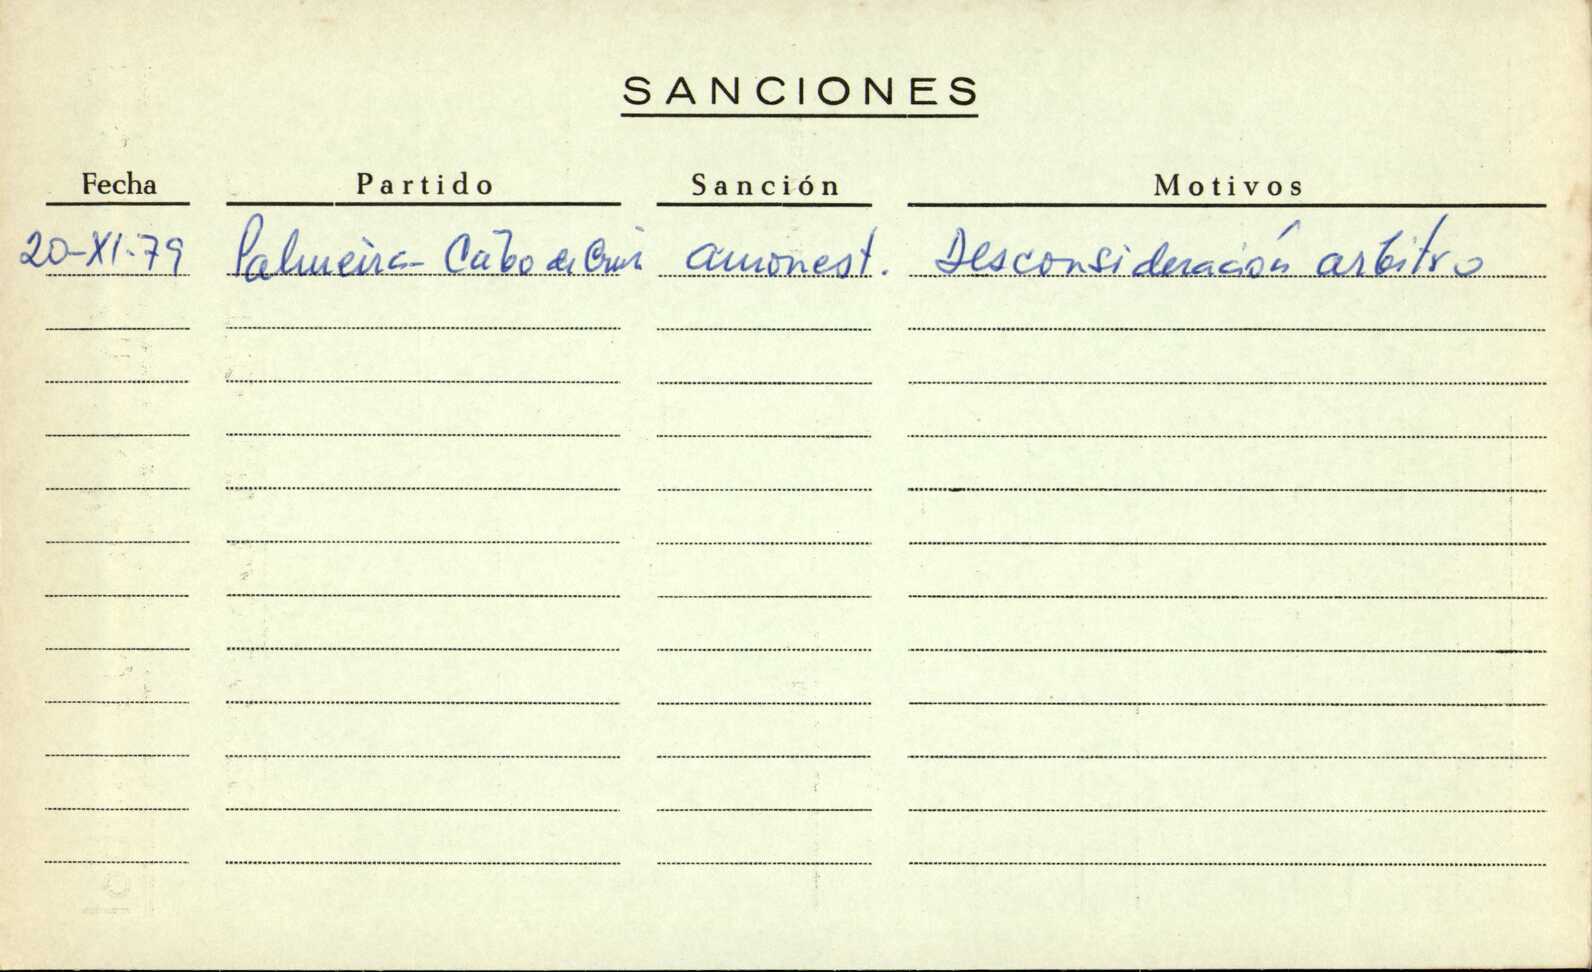 SANCIONES
Fecha Partido Sanción Motivos
20-XI-79 Palmeira- Cabo de Cruz amonest. Desconsideración arbitro